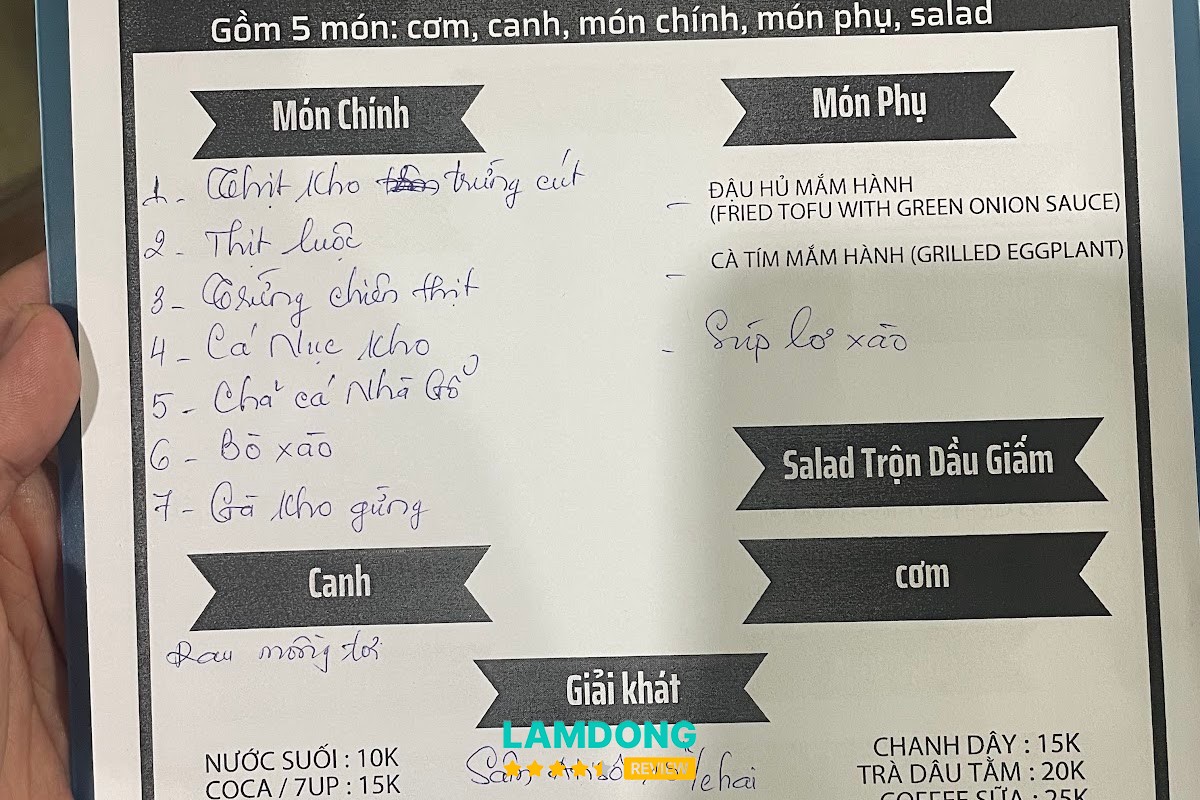 Gồm 5 món: cơm, canh, món chính, món phụ, salad
Món Chính
1- Thịt kho trứng cút
2- Thịt luộc
3- Trứng chiên thịt
4- Cá Nục kho
5- Chả cá Nhà Gổ
6- Bò xào
7- Gà kho gừng
Món Phụ
- ĐẬU HỦ MẮM HÀNH
(FRIED TOFU WITH GREEN ONION SAUCE)
- CÀ TÍM MẮM HÀNH (GRILLED EGGPLANT)
- Súp lơ xào
Salad Trộn Dầu Giấm
cơm
Canh
Rau mồng tơi
Giải khát
NƯỚC SUỐI : 10K
COCA / 7UP : 15K
Sâm
CHANH DÂY : 15K
TRÀ DÂU TẰM : 20K
COFFEE SỮA : 25K
LAMDONG
REVIEW